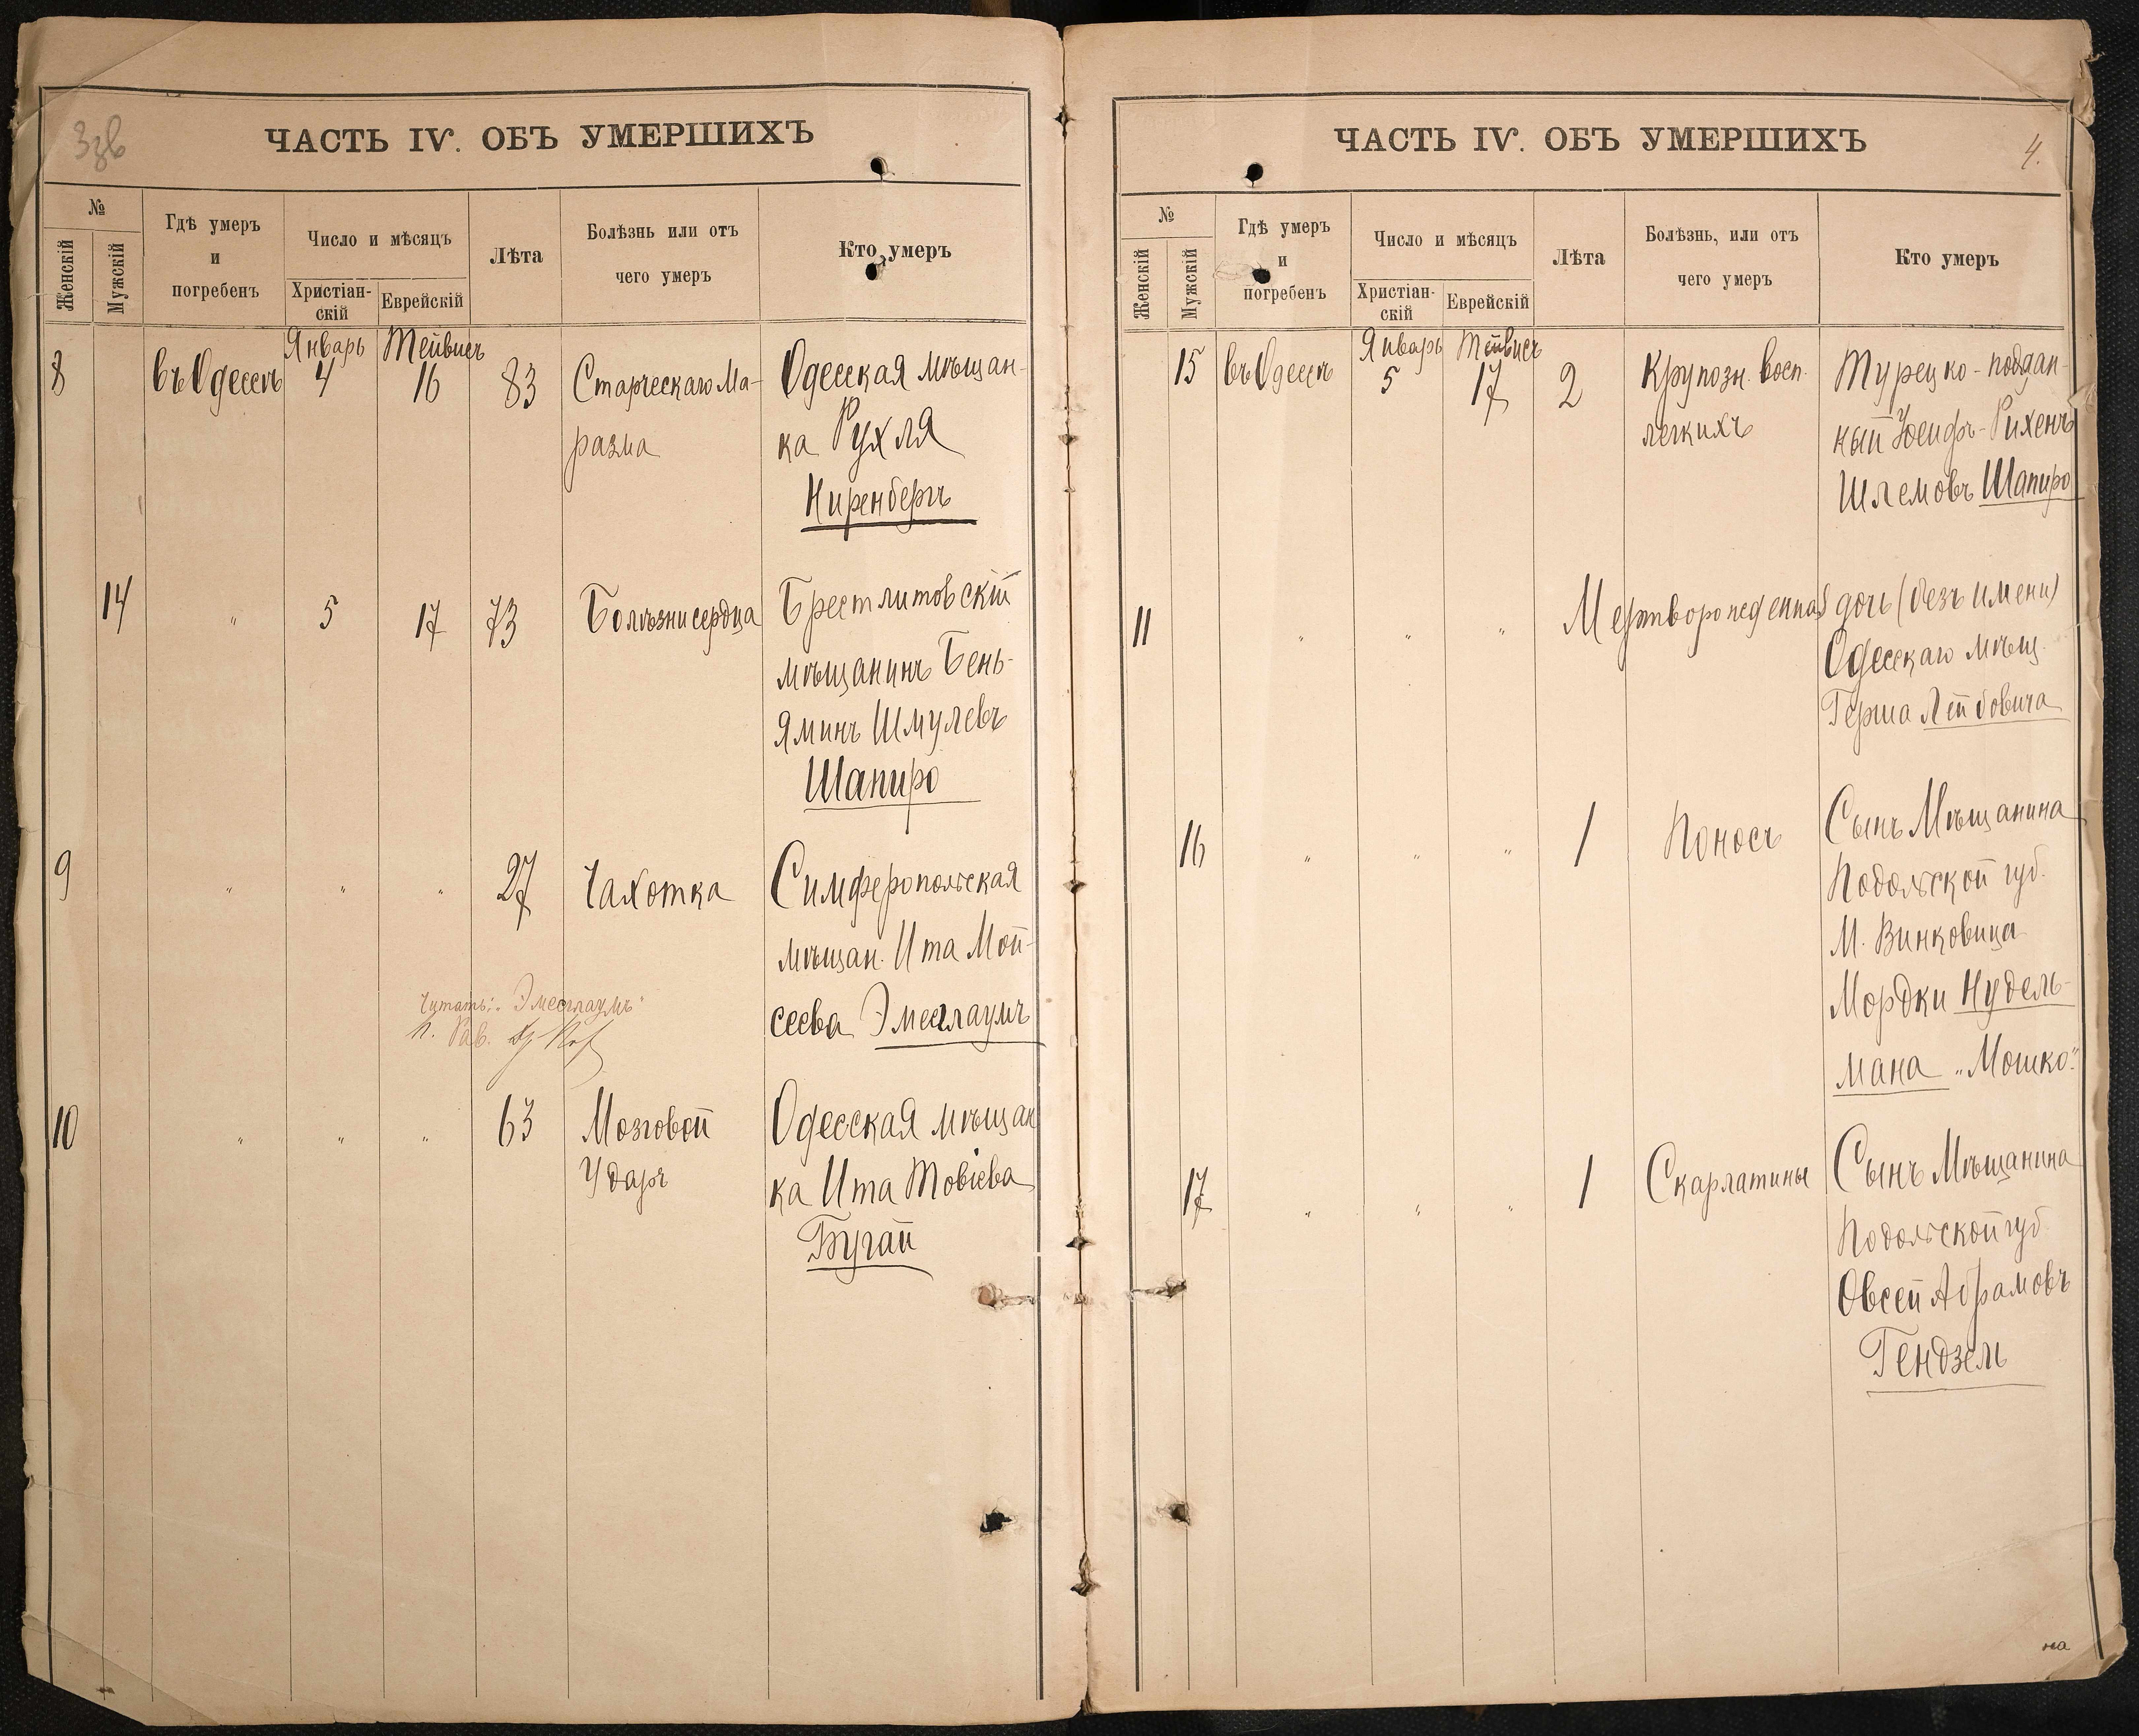 3зв
ЧАСТЬ IV. ОБЪ УМЕРШИХЪ
№
Женскій
Мужскій
Гдѣ умеръ
и
погребенъ
Число и мѣсяцъ
Христіан-
скій
Еврейскій
Лѣта
Болѣзнь или отъ
чего умеръ
Кто умеръ
Январь Тейвисъ
8 въ Одессѣ 4 16 83 Старческаго Ма- Одесская мѣщан-
разма ка Рухля
Ниренбергъ
14 " 5 17 73 Болѣзни сердца Брестлитовскій
мѣщанинъ Бень-
яминъ Шмулевъ
Шапиро
9 " " " 27 Чахотка Симферопольская
мѣщан. Ита Мой-
сеева Эмеслаумъ
Читать: "Эмеслаумъ"
п. Рав.
10 " " " 63 Мозговой Одесская мѣщан
Ударъ ка Ита Товіева
Бугай
ЧАСТЬ IV. ОБЪ УМЕРШИХЪ
4.
№
Женскій
Мужскій
Гдѣ умеръ
и
погребенъ
Число и мѣсяцъ
Христіан-
скій
Еврейскій
Лѣта
Болѣзнь, или отъ
чего умеръ
Кто умеръ
Январь Тейвисъ
15 въ Одессѣ 5 17 2 Крупозн. восп. Турецко-поддан-
легкихъ ный Іосифъ-Рихенъ
Шлемовъ Шапиро
11 " " " Мертворожденная дочь (безъ имени)
Одесскаго мѣщ.
Герша Лейбовича
16 " " " 1 Поносъ Сынъ Мѣщанина
Подольской губ.
М. Винковица
Мордки Нудель-
мана "Мошко".
17 " " " 1 Скарлатины Сынъ Мѣщанина
Подольской губ
Овсей Абрамовъ
Гендзель
на